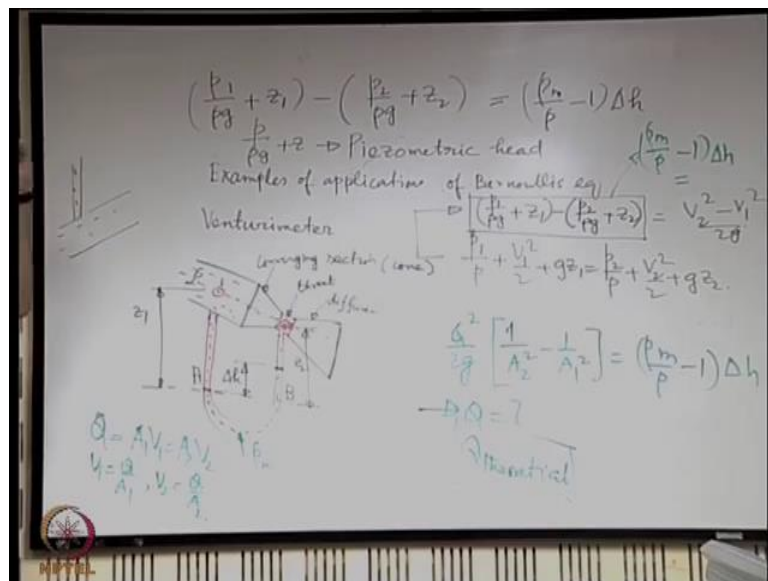 (p₁/ρg + z₁) − (p₂/ρg + z₂) = (ρm/ρ − 1)Δh
p/ρg + z → Piezometric head
(ρm/ρ − 1)Δh
Examples of application of Bernoullis eq
=
Venturimeter
(p₁/ρg + z₁) − (p₂/ρg + z₂) = V₂² − V₁² / 2g
p₁/ρ + V₁²/2 + gz₁ = p₂/ρ + V₂²/2 + gz₂.
converging section (cone)
throat
ρ
1
z₁
z₂
Δh
A
B
ρm
Q²/2g [1/A₂² − 1/A₁²] = (ρm/ρ − 1)Δh
Q = ?
Qtheoretical
Q = A₁V₁ = A₂V₂
V₁ = Q/A₁, V₂ = Q/A₂
NPTEL